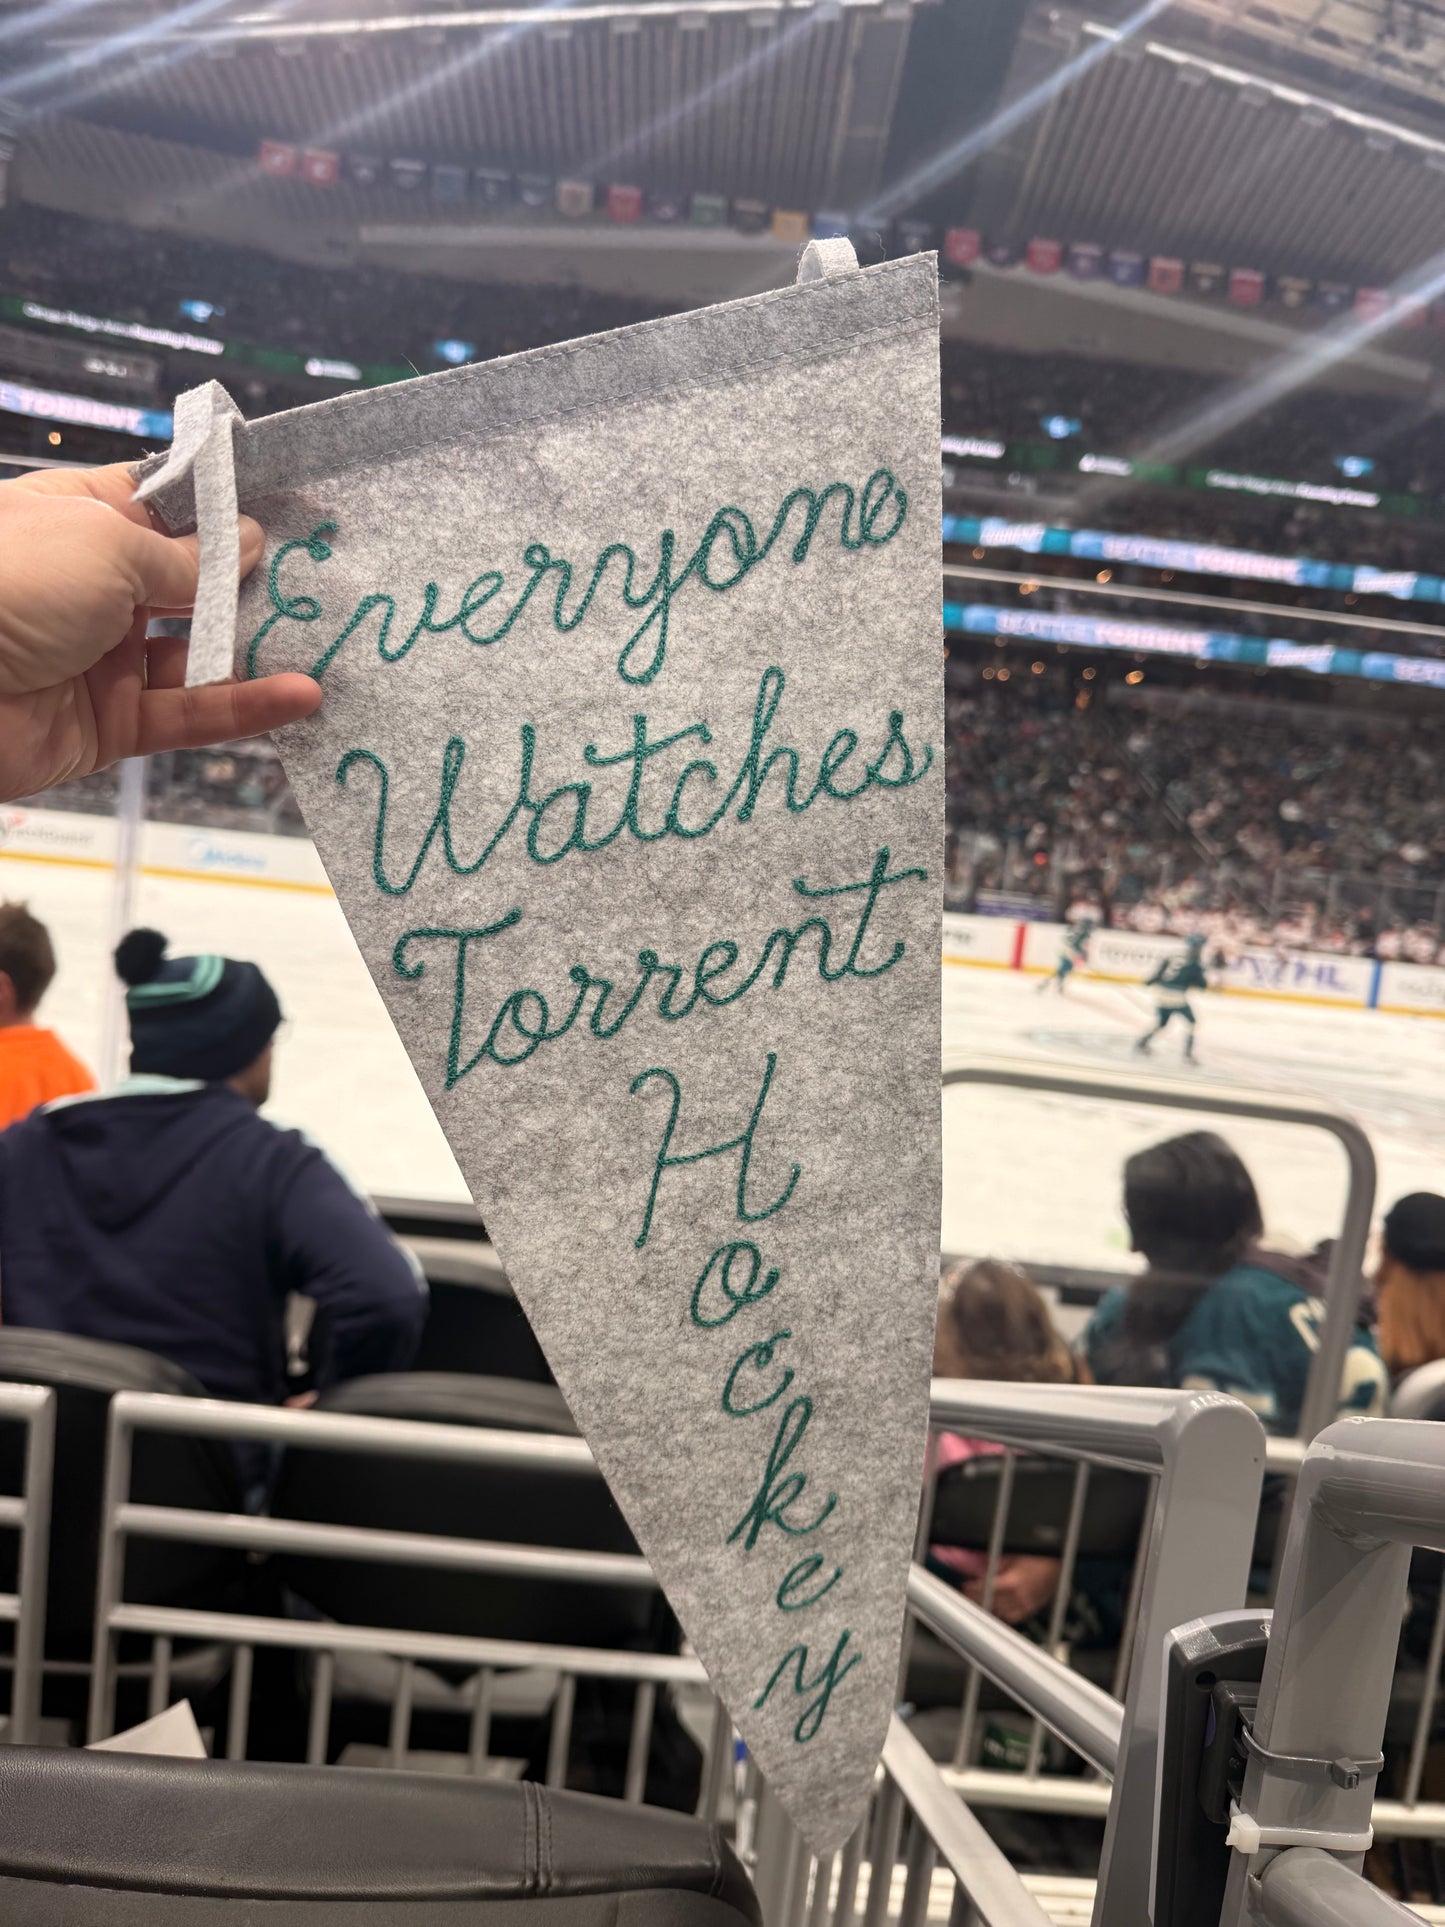 Everyone
Watches
Torrent
H
o
c
k
e
y
TORRENT
SEATTLE TORRENT
SEATTLE TORRENT
TOYOTA